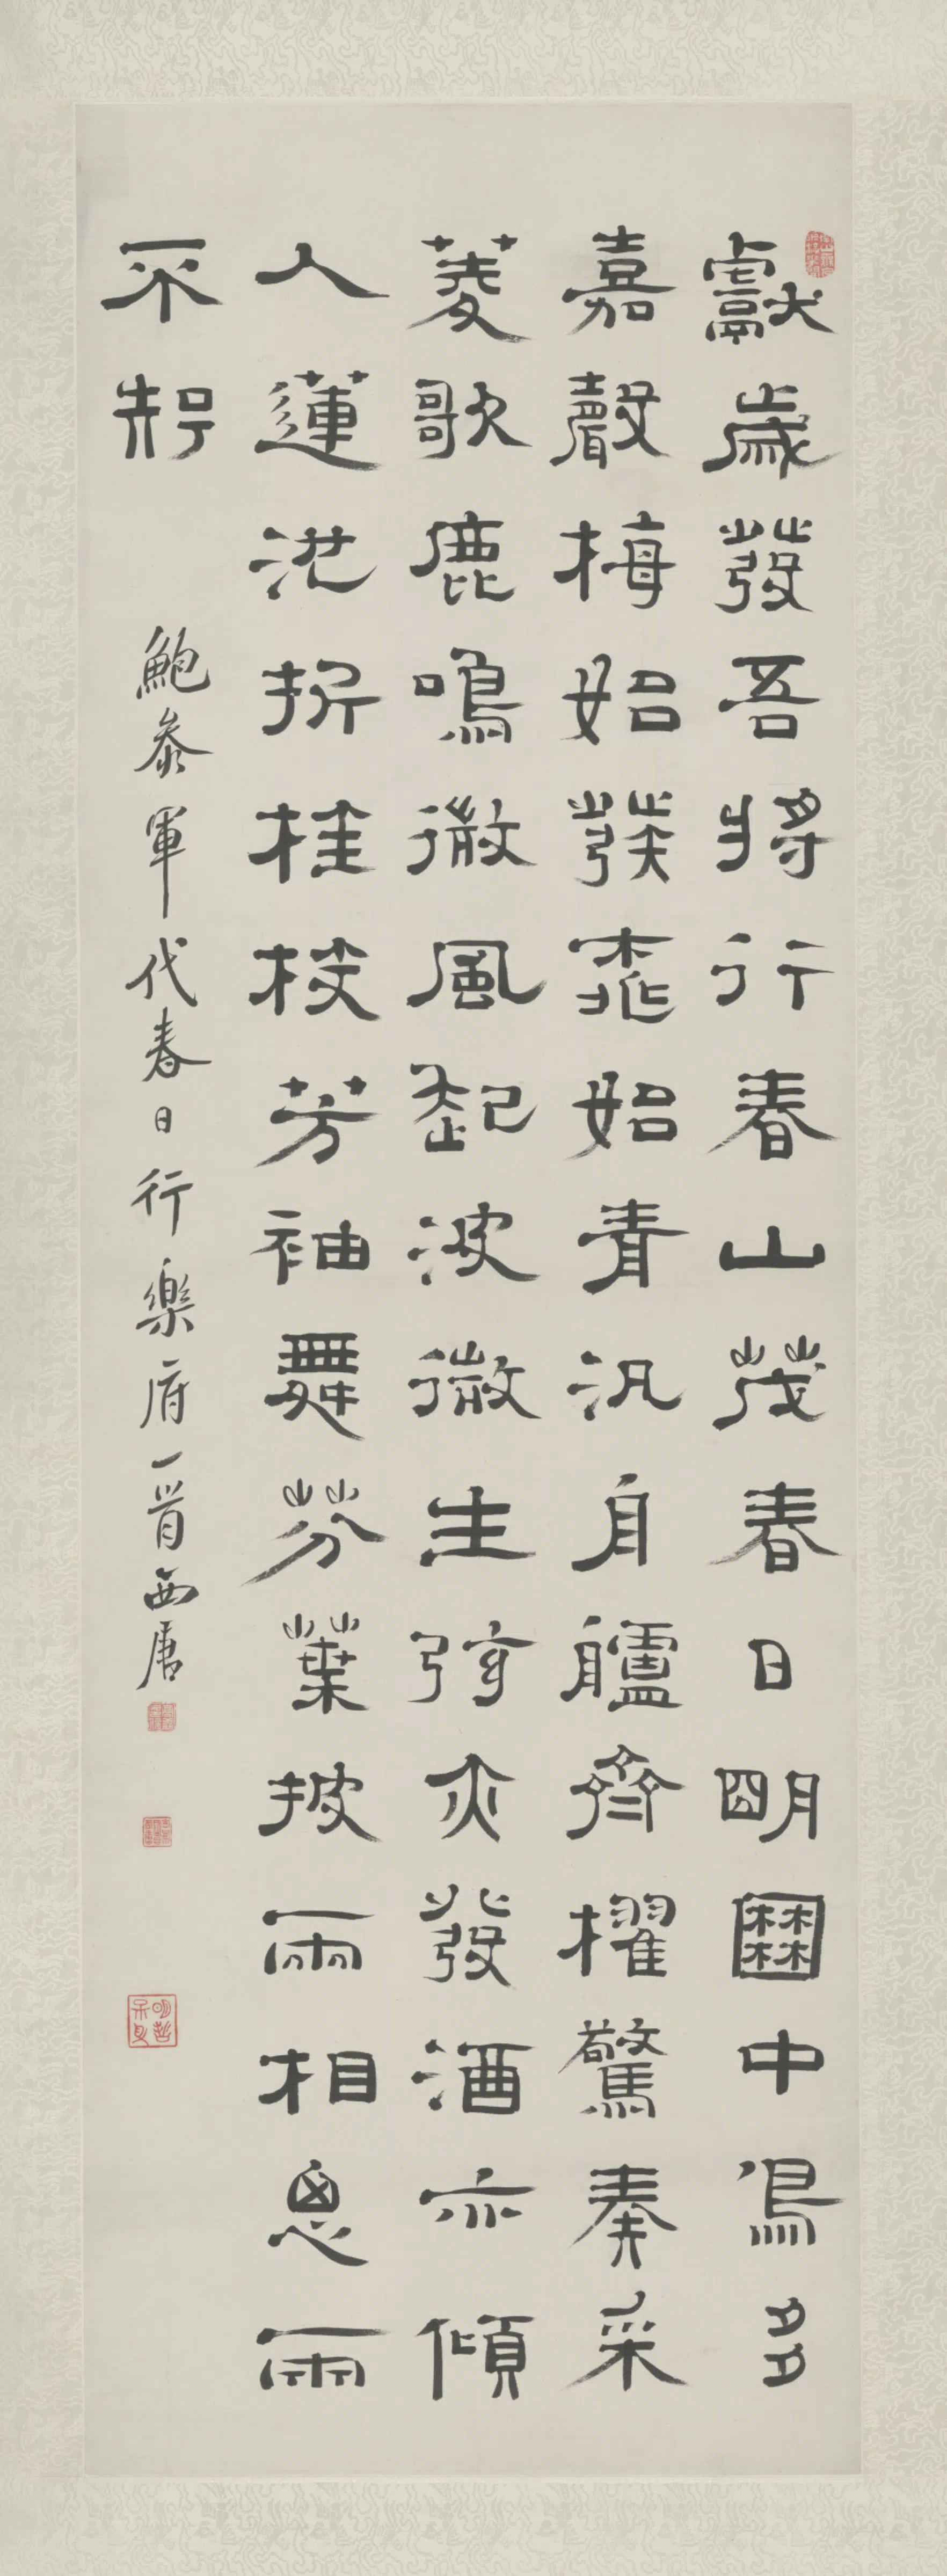 獻歲發吾將行春山茂春日明園中鳥多
嘉聲梅始發桃始青汎舟艫齊櫂驚奏采
菱歌鹿鳴微風起波微生弦亦發酒亦傾
入蓮池折桂枝芳袖舞芬葉披兩相思兩
不知
鮑參軍代春日行樂府一首西唐